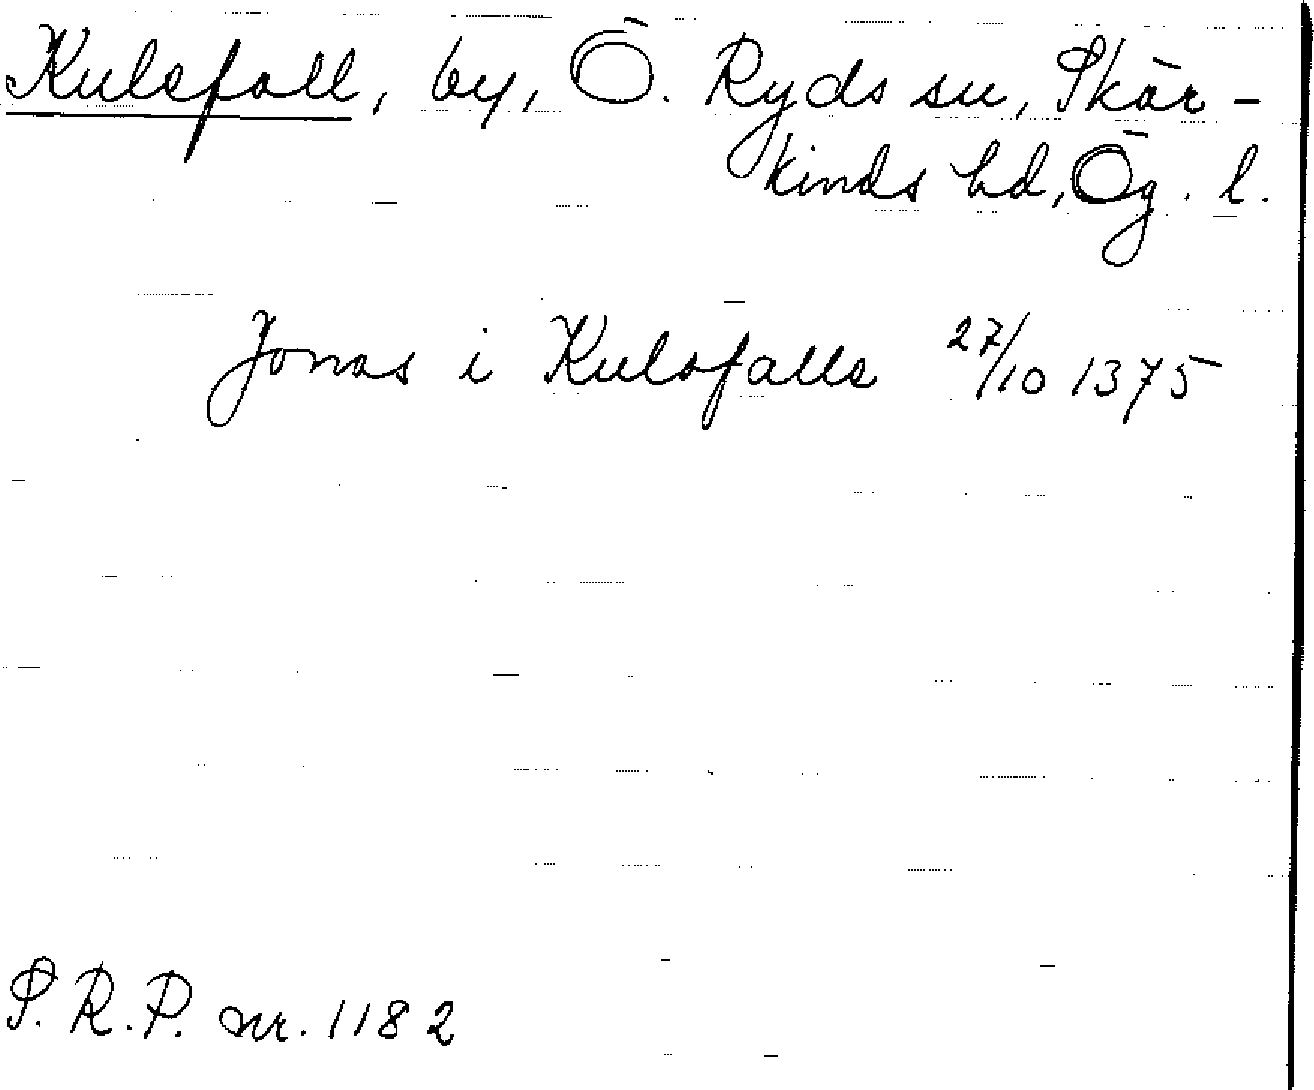 Kulsfall, by, Ö. Ryds sn, Skär-
kinds hd, Ög. l.
Jonas i Kulsfalls 27/10 1375
S. R. P. nr. 1182